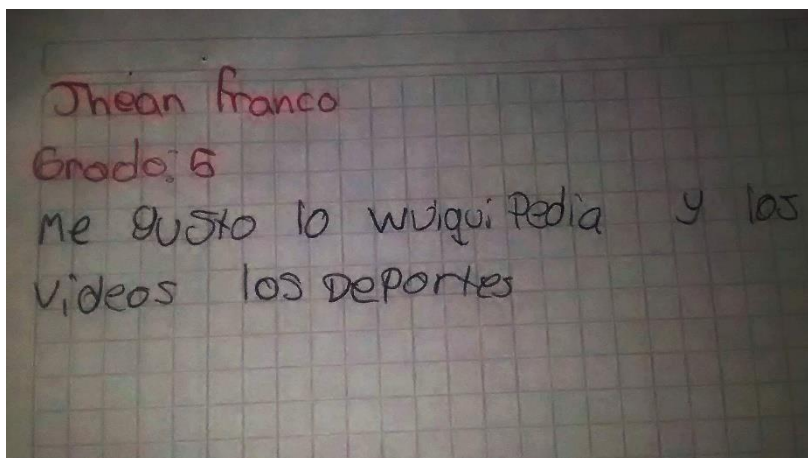 Jhean franco
Grado: 5
Me gusto lo wuiqui Pedia y los
videos los Deportes